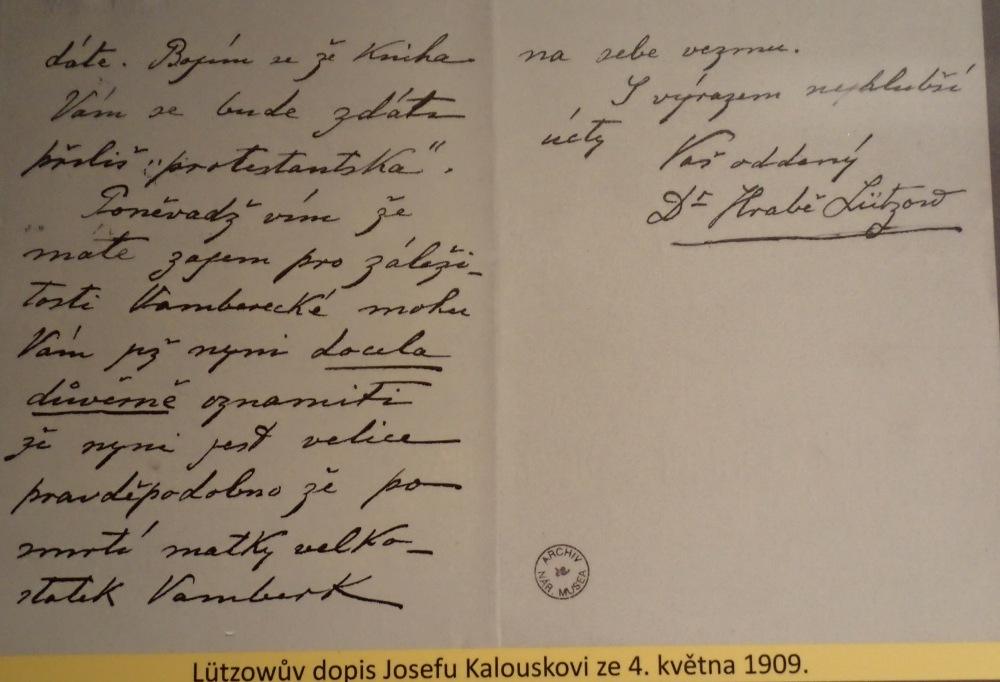 dáte. Bojím se že Kniha
Vám se bude zdáti
příliš „protestantska“.
Poněvadž vím že
máte zajem pro záleži-
tosti Vamberecké mohu
Vám již nyni docela
důvěrně oznamiti
že nyni jest velice
pravděpodobno že po
smrti matky velko-
statek Vamberk
na sebe vezmu.
S výrazem nejhlubší
úcty
Váš oddaný
Dr Hrabě Lützow
ARCHIV
NÁR. MUSEA
Lützowův dopis Josefu Kalouskovi ze 4. května 1909.